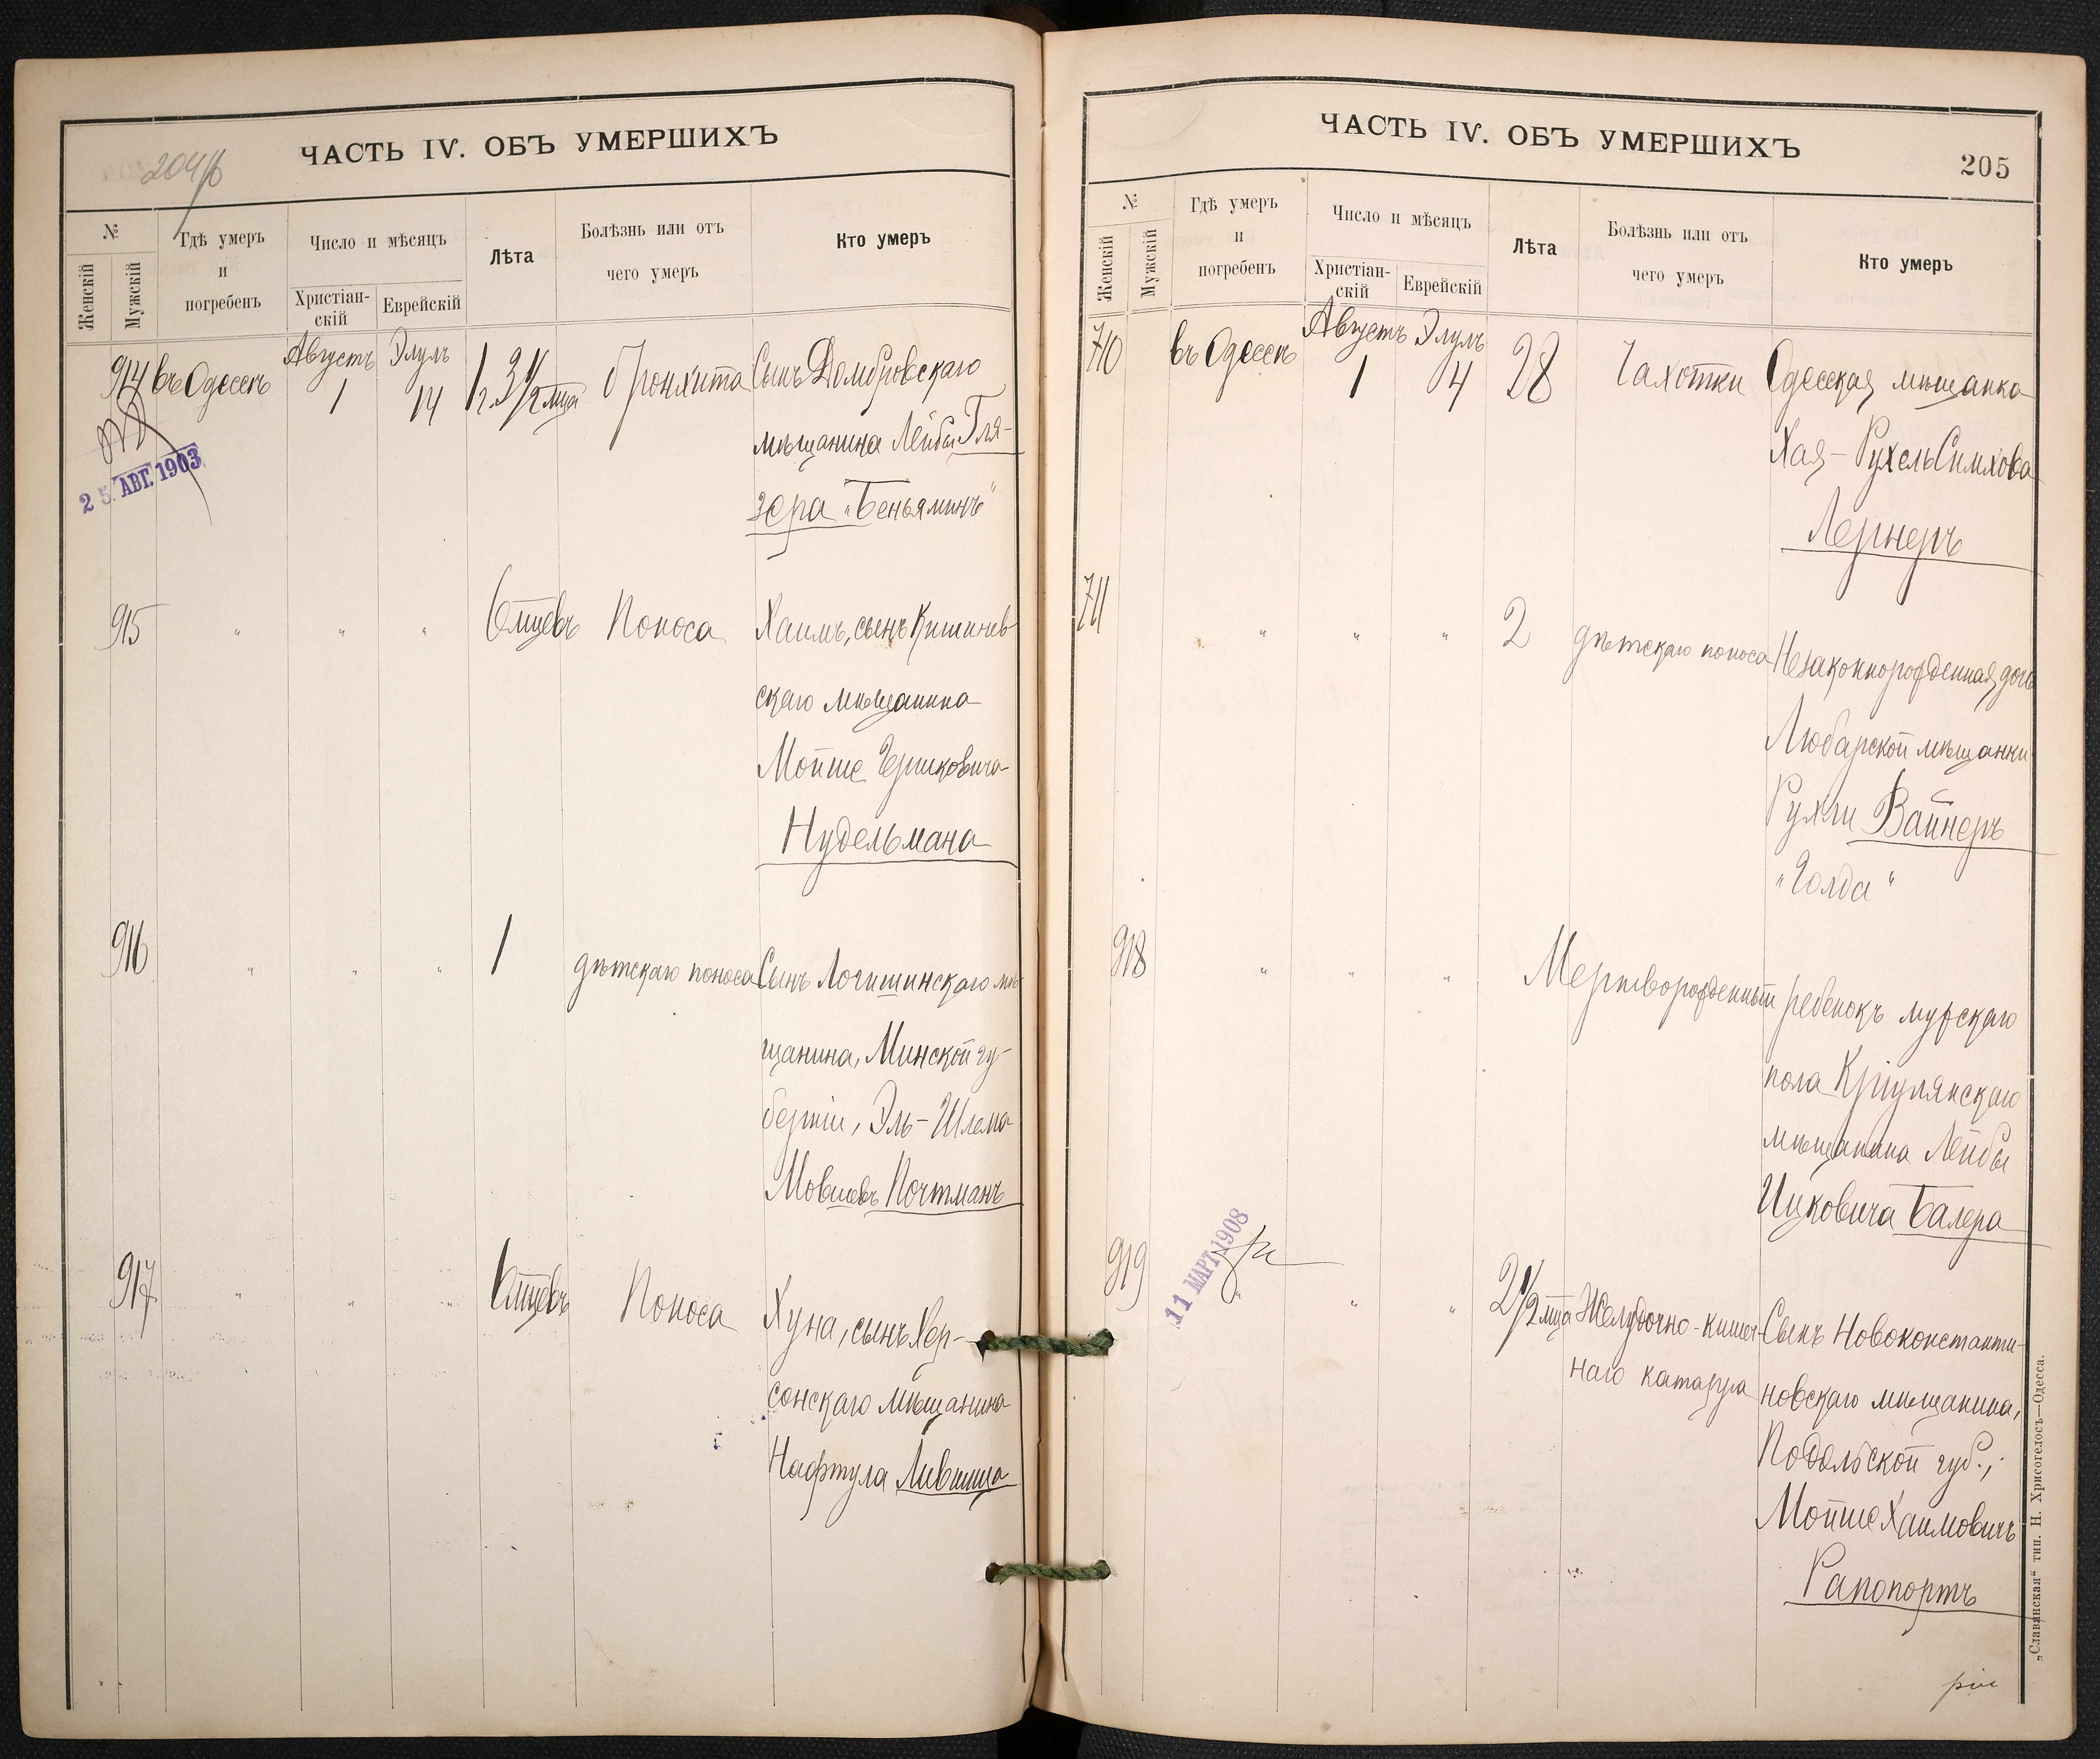 204/б
ЧАСТЬ IV. ОБЪ УМЕРШИХЪ
№
Женскій
Мужскій
Гдѣ умеръ
и
погребенъ
Число и мѣсяцъ
Христіан-
скій
Еврейскій
Лѣта
Болѣзнь или отъ
чего умеръ
Кто умеръ
914 въ Одессѣ Августъ 1 Элулъ 14 Бронхита Сынъ Домбровскаго
мѣщанина Лейбы Гля-
зера „Беньяминъ"
25. АВГ. 1903
915 " " " 6 мцевъ Поноса Хаимъ, сынъ Кишинев-
скаго мѣщанина
Мойше Гершковича
Нудельмана
916 " " " 1 дѣтскаго поноса Сынъ Логишинскаго мѣ-
щанина, Минской гу-
берніи, Эль-Шлема
Мовшевъ Почтманъ
917 " " " 6 мцевъ Поноса Хуна, сынъ Хер-
сонскаго мѣщанина
Нафтула Лившица
ЧАСТЬ IV. ОБЪ УМЕРШИХЪ
205
№
Женскій
Мужскій
Гдѣ умеръ
и
погребенъ
Число и мѣсяцъ
Христіан-
скій
Еврейскій
Лѣта
Болѣзнь или отъ
чего умеръ
Кто умеръ
710 въ Одессѣ Августъ 1 Элулъ 14 28 Чахотки Одесская мѣщанка
Хая-Рухель Симхова
Лернеръ
711 " " " 2 дѣтскаго поноса Незаконнорожденная дочь
Любарской мѣщанки
Рухли Вайнеръ
„Голда"
918 " " " Мертворожденный ребенокъ мужскаго
пола Кріулянскаго
мѣщанина Лейбы
Ицковича Балера
11 МАРТ. 1908
919 " " " 2 1/2 мца Желудочно-кишеч- Сынъ Новоконстанти-
наго катарра новскаго мѣщанина,
Подольской губ.,
Мойше Хаимовичъ
Рапопортъ
„Славянская" тип. Н. Хрисогелосъ—Одесса.